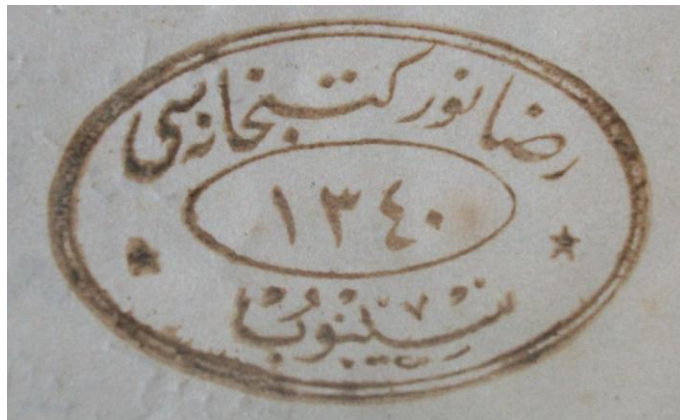 رضا نور كتبخانه سی
١٣٤٠
سينوب